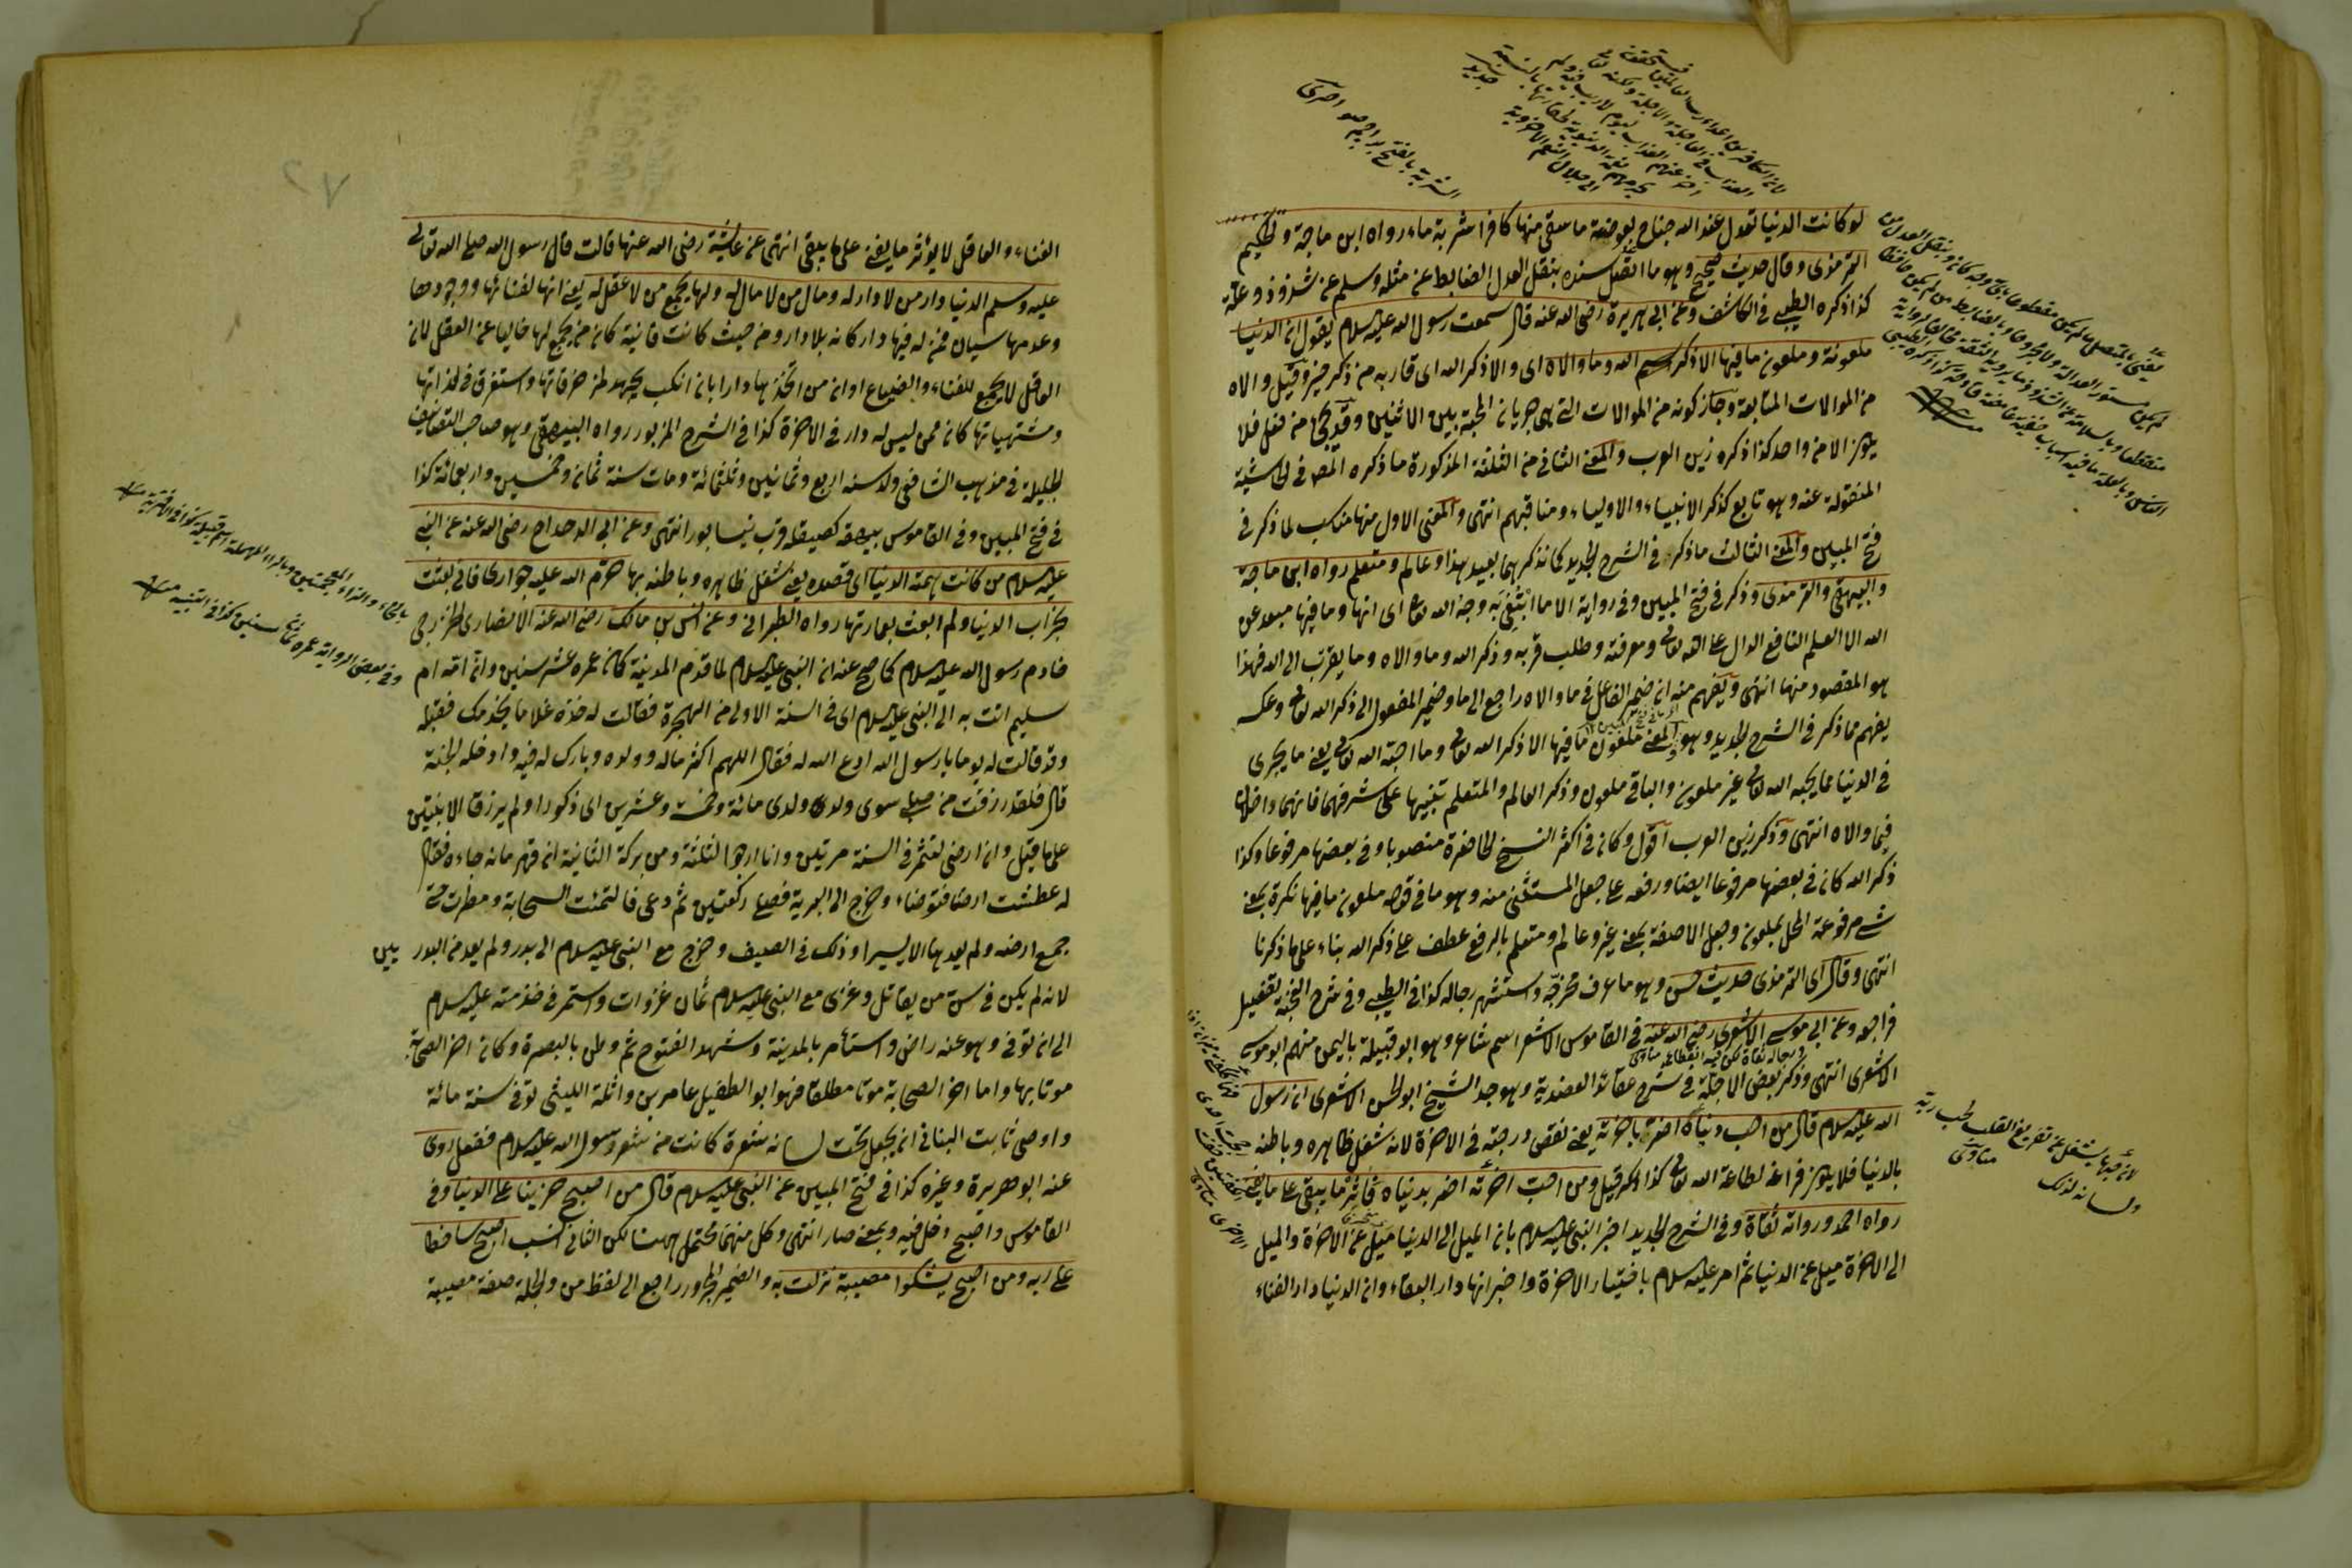 لو كانت الدنيا تعدل عند الله جناح بعوضة ما سقى منها كافرا شربة ماء رواه ابن ماجة والحكيم
الترمذى وقال حديث صحيح وهو ما اتصل سنده بنقل العدل الضابط عن مثله وسلم عن شذوذ وعلة
كذا ذكره الطيبى فى الكاشف وعن ابى هريرة رضى الله عنه قال سمعت رسول الله عليه السلام يقول ان الدنيا
ملعونة وملعون ما فيها الا ذكر الله وما والاه اى والا ذكر الله اى قاربه من ذكر خير وقيل والاه
من الموالات المتابعة وجاز كونه من الموالات التى هى جريان المحبة بين الاثنين وقد تجئ من فعل فلا
يكون الا من واحد كذا ذكره زين العرب والمعنى الثانى من الثلثة المذكورة ما ذكره المص فى الحاشية
المنقولة عنه وهو تابع كذكر الانبياء والاولياء ومناقبهم انتهى والمعنى الاول منها مناسب لما ذكر فى
فتح المبين والمعنى الثالث ما ذكر فى الشرح الجديد كما نذكرهما بعيد هذا وعالم ومتعلم رواه ابن ماجة
والبيهقى والترمذى وذكر فى فتح المبين وفى رواية الا ما ابتغى به وجه الله تعالى اى انها وما فيها مبعد عن
الله الا العلم النافع الدال على الله تعالى ومعرفته وطلب قربه وذكر الله وما والاه وما يقرب الى الله فهذا
هو المقصود منها انتهى ويفهم منه ان ضمير الفاعل فى ما والاه راجع الى ما وضمير المفعول الى ذكر الله تعالى وعكسه
يفهم مما ذكر فى الشرح الجديد وهو والمعنى ملعون ما فيها الا ذكر الله تعالى وما احبه الله تعالى يعنى ما يجرى
فى الدنيا مما يحبه الله تعالى غير ملعون والباقى ملعون وذكر العالم والمتعلم تنبيها على شرفهما فانهما داخلان
فيما والاه انتهى وذكر زين العرب اقول وكان فى اكثر النسخ الحاضرة منصوبا وفى بعضها مرفوعا وكذا
ذكر الله كان فى بعضها مرفوعا ايضا ورفعه على جعل المستثنى منه وهو ما فى قوله ملعون ما فيها نكرة بمعنى
شئ مرفوعة المحل بملعون وجعل الا صفة بمعنى غير وعالم ومتعلم بالرفع عطف على ذكر الله بناء على ما ذكرنا
انتهى وقال اى الترمذى حديث حسن وهو ما عرف مخرجه واستشهر رجاله كذا فى الطيبى وفى شرح النخبة تفصيل
فراجعه وعن ابى موسى الاشعرى رضى الله عنه فى القاموس الاشعر اسم شاعر وهو ابو قبيلة باليمن منهم ابو موسى
الاشعرى انتهى وذكر بعض الاجلة فى شرح عقائد العضدية وهو جد الشيخ ابو الحسن الاشعرى ان رسول
الله عليه السلام قال من احب دنياه اضر باخرته يعنى نقص درجته فى الاخرة لانه شغل ظاهره وباطنه
بالدنيا فلا يكون فراغه لطاعة الله تعالى كذا ذكر قيل ومن احب اخرته اضر بدنياه فآثروا ما يبقى على ما يفنى
رواه احمد ورواته ثقاة وفى الشرح الجديد اخبر النبى عليه السلام بان الميل الى الدنيا ميل عن الاخرة والميل
الى الاخرة ميل عن الدنيا ثم امر عليه السلام باختيار الاخرة واخبر انها دار البقاء وان الدنيا دار الفناء
الشربة بالفتح
لانه قد بما يشتغل عن تفريغ القلب لحب ربه
ولسانه لذلك
مناوى
الفناء والعاقل لا يؤثر ما يفنى على ما يبقى انتهى عن عائشة رضى الله عنها قالت قال رسول الله صلى الله تعالى
عليه وسلم الدنيا دار من لا دار له ومال من لا مال له ولها يجمع من لا عقل له يعنى انها لفنائها ووجودها
وعدمها سيان فمن له فيها دار كانه بلا دار ومن حيث كانت فانية كان من يجمع لها خاليا عن العقل لان
العاقل لا يجمع للفناء والضياع او ان من اتخذها دارا بان انكب بجهد طرحرفاتها واستغرق فى لذاتها
ومشتهياتها كان ممن ليس له دار فى الاخرة كذا فى الشرح المزبور رواه البيهقى وهو صاحب التصانيف
الجليلة فى مذهب الشافعى ولد سنة اربع وثمانين وثلثمائة ومات سنة ثمان وخمسين واربعمائة كذا
فى فتح المبين وفى القاموس بيهق كصيقل قرب نيسابور انتهى وعن ابى الدحداح رضى الله عنه عن النبى
عليه السلام من كانت همته الدنيا اى قصده يعنى شغل ظاهره وباطنه بها حرم الله عليه جوارى فانى بعثت
بخراب الدنيا ولم ابعث بعمارتها رواه الطبرانى وعن انس بن مالك رضى الله عنه الانصارى الخزرجى
خادم رسول الله عليه السلام كما صح عنه ان النبى عليه السلام لما قدم المدينة كان عمره عشر سنين وان امه ام
سليم اتت به الى النبى عليه السلام اى فى السنة الاولى من الهجرة فقالت له خذه غلاما يخدمك فقبله
وقد قالت له يوما يا رسول الله ادع الله له فقال اللهم اكثر ماله وولده وبارك له فيه وادخله الجنة
قال فلقد رزقت من صلبى سوى ولد ولدى مائة وخمسة وعشرين اى ذكورا ولم يرزق الا بنتين
على ما قيل وان ارضى لتثمر فى السنة مرتين وانا ارجو الثلثة ومن بركة الثانية ان قهرمانه جاءه فقال
له عطشت ارضنا فتوضاء وخرج الى البرية فصلى ركعتين ثم دعى فالتمئت السحابة ومطرت حتى
جمع ارضه ولم يعدها الا يسيرا وذلك فى الصيف وخرج مع النبى عليه السلام الى بدر ولم يعد من البدريين
لانه لم يكن فى سن من يقاتل وغزى مع النبى عليه السلام ثمان غزوات واستمر فى خدمته عليه السلام
الى ان توفى وهو عنه راض واستأمر بالمدينة وشهد الفتوح ثم وطن بالبصرة وكان اخر الصحابة
موتا بها واما اخر الصحابة موتا مطلقا فهو ابو الطفيل عامر بن واثلة الليثى توفى سنة مائة
واوصى ثابت البنانى ان يجعل تحت لسانه شعرة كانت من شعر رسول الله عليه السلام ففعل روى
عنه ابو هريرة وغيره كذا فى فتح المبين عن النبى عليه السلام قال من اصبح حزينا على الدنيا وفى
القاموس واصبح دخل فيه وبمعنى صار انتهى وكل منهما محتمل ههنا لكن الثانى انسب اصبح ساخطا
على ربه ومن اصبح يشكوا مصيبة نزلت به والضمير المجرور راجع الى لفظ من والجملة صفة مصيبة
وفى بعض الرواية عمره ثمان سنين كذا فى